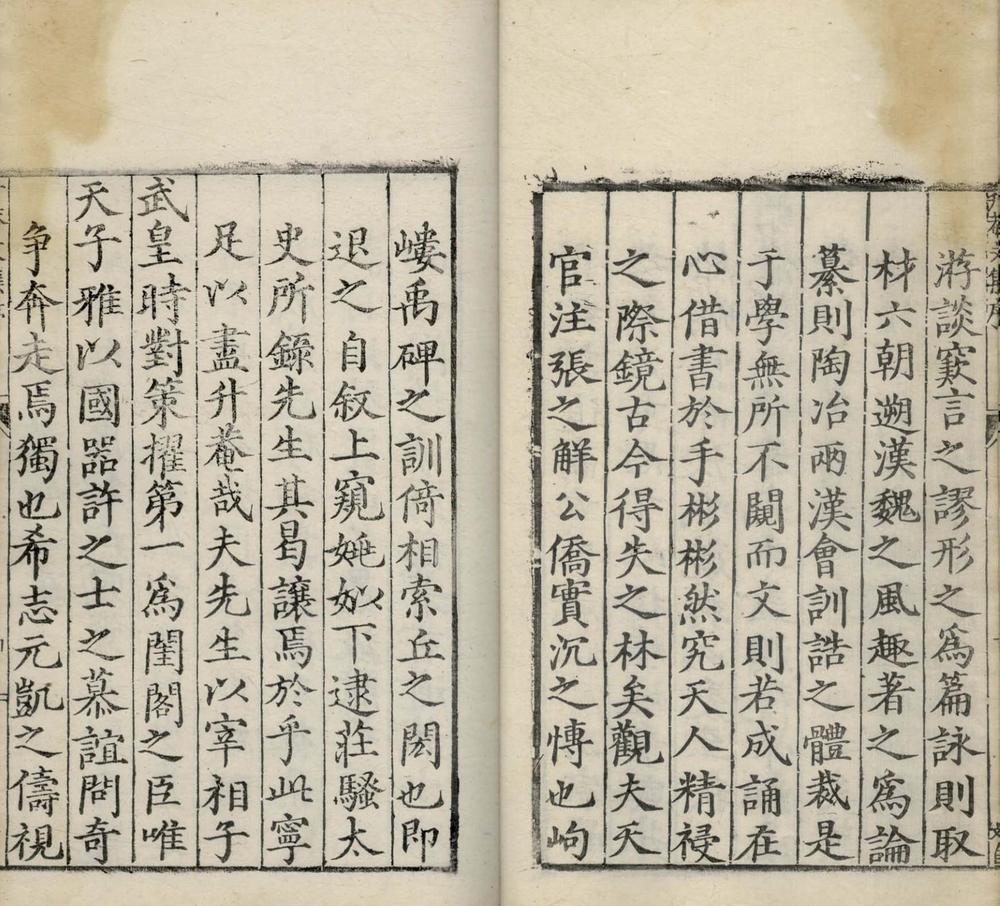 游談窾言之謬形之爲篇詠則取
材六朝遡漢魏之風趣著之爲論
纂則陶冶兩漢會訓誥之體裁是
于學無所不闚而文則若成誦在
心借書於手彬彬然究天人精祲
之際鏡古今得失之林矣觀夫天
官注張之觧公僑實沉之慱也岣
嶁禹碑之訓倚相索丘之閎也即
退之自叙上窺姚姒下逮莊騷太
史所錄先生其曷讓焉於乎此寧
足以盡升菴哉夫先生以宰相子
武皇時對策擢第一爲閨閣之臣唯
天子雅以國器許之士之慕誼問奇
争奔走焉獨也希志元凱之儔視